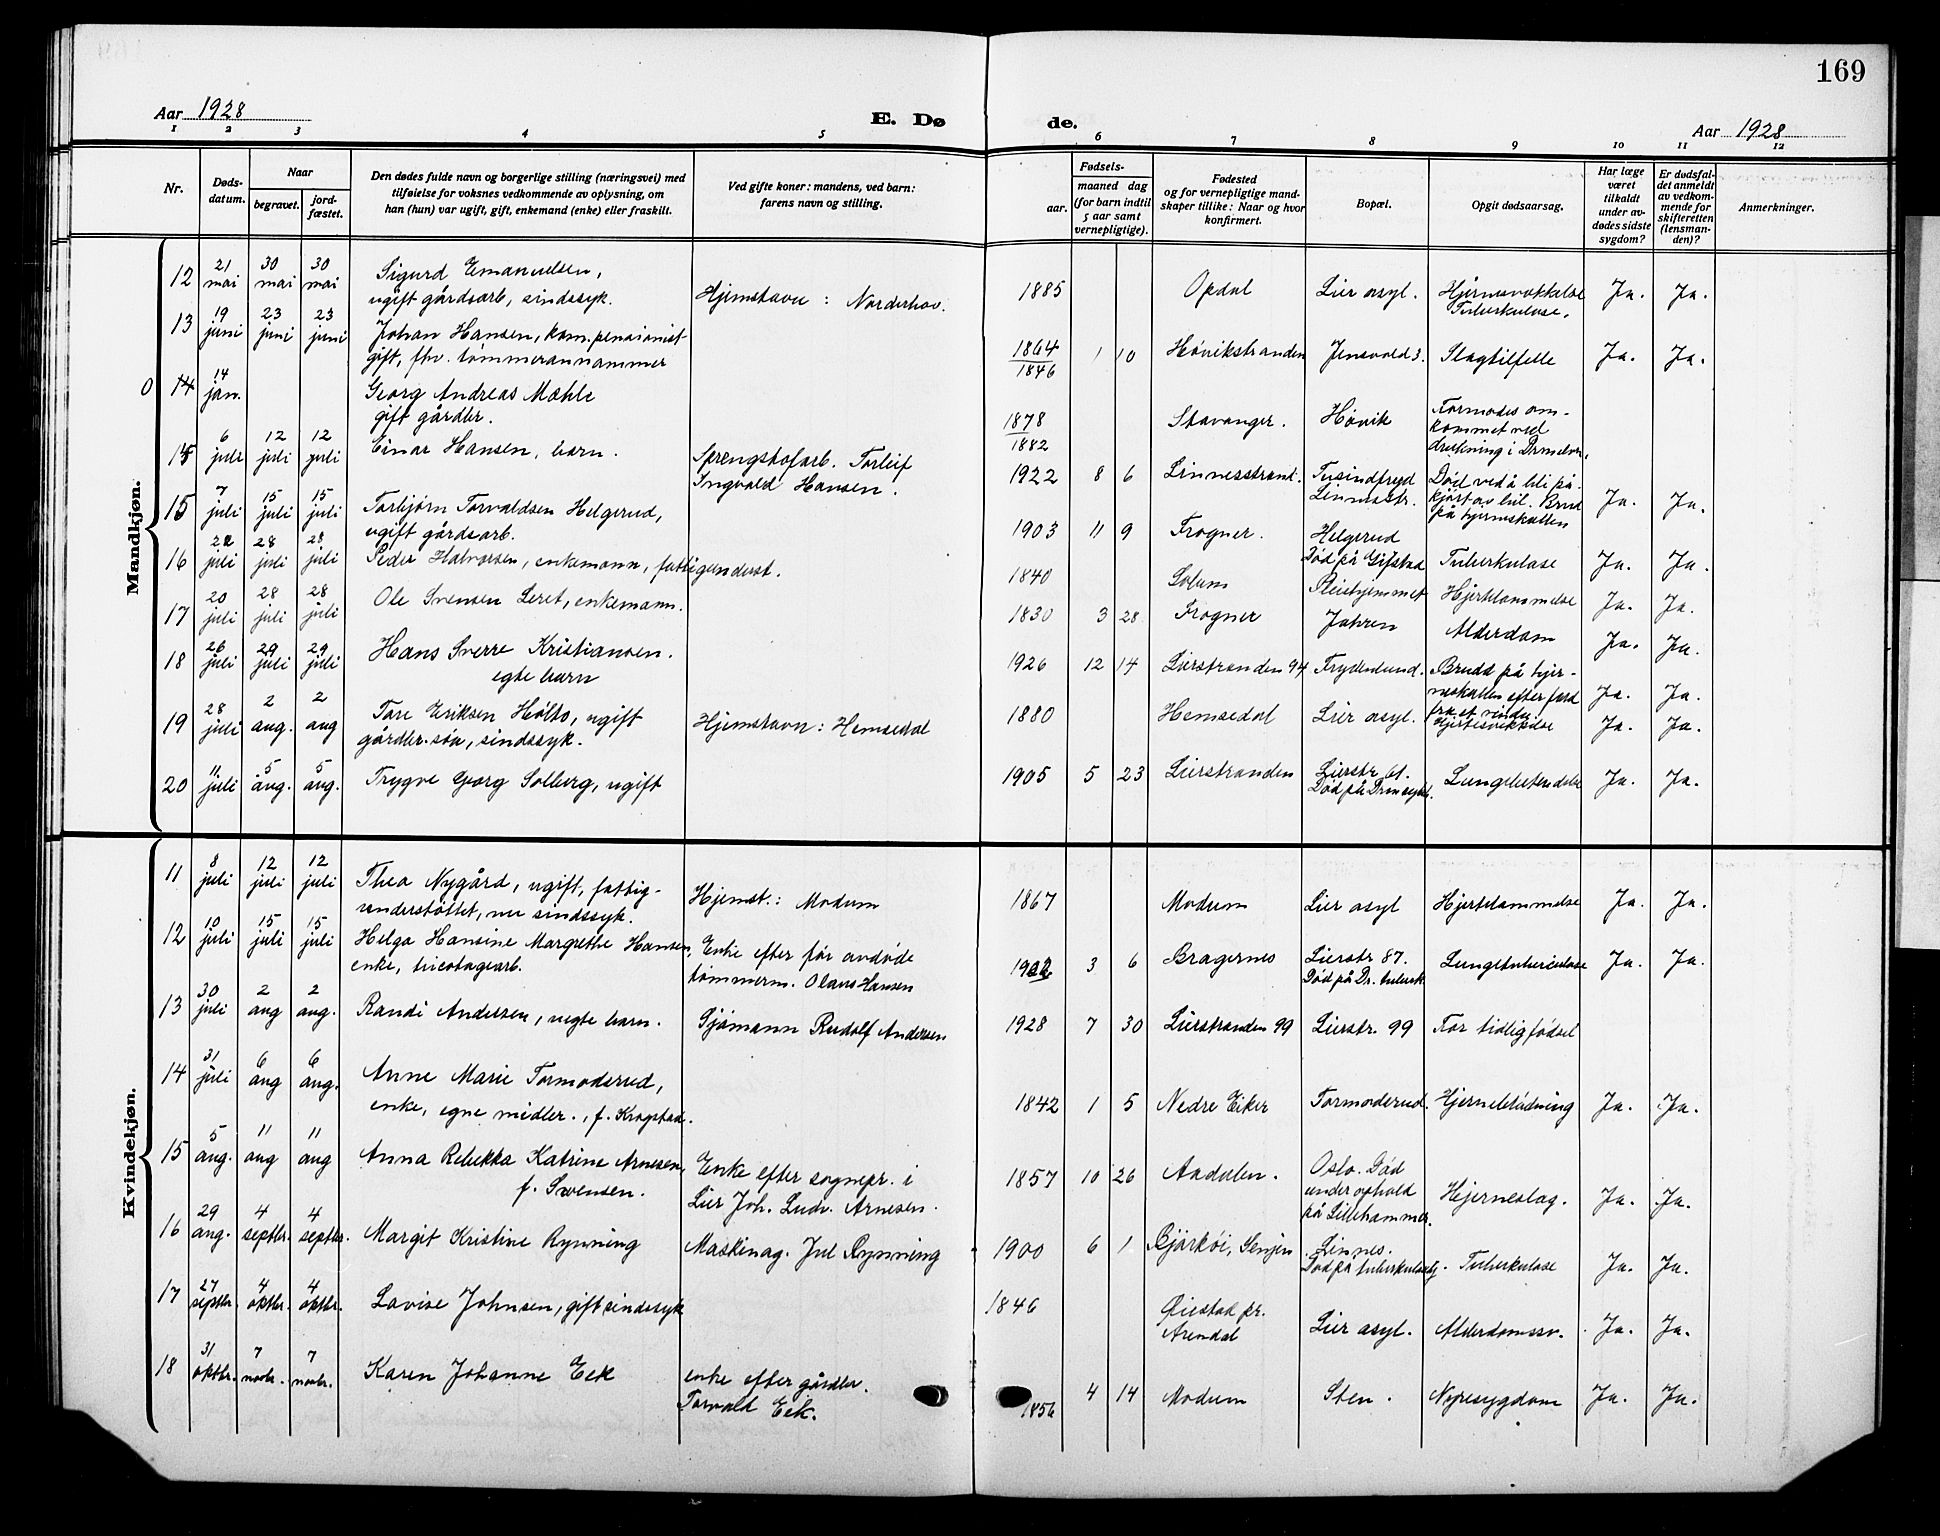 169
Aar 1928
E. Dø de.
Aar 1928
1 2 3 4 5 6 7 8 9 10 11 12
Nr.
Døds-
datum.
Naar
begravet.
jord-
fæstet.
Den dødes fulde navn og borgerlige stilling (næringsvei) med
tilføielse for voksnes vedkommende av oplysning, om
han (hun) var ugift, gift, enkemand (enke) eller fraskilt.
Ved gifte koner: mandens, ved barn:
farens navn og stilling.
Fødsels-
aar.
maaned dag
(for barn indtil
5 aar samt
vernepligtige).
Fødested
og for vernepligtige mand-
skaper tillike: Naar og hvor
konfirmert.
Bopæl.
Opgit dødsaarsag.
Har læge
været
tilkaldt
under av-
dødes sidste
sygdom?
Er dødsfal-
det anmeldt
av vedkom-
mende for
skifteretten
(lensman-
den)?
Anmerkninger.
Mandkjøn.
12 21 mai 30 mai 30 mai Sigurd Emanuelsen,
ugift gårdsarb, sindssyk. Hjemstavn: Norderhov. 1885 Opdal Lier asyl. Hjernevekkelse
Tuberkulose. Ja. Ja.
13 19 juni 23 juni 23 juni Johan Hansen, kom. pensionist
gift, fhv. tømmerannammer 1864
1846 1 10 Høvikstranden Jensvold 3. Slagtilfelle Ja. Ja.
0 14 14 jan. Georg Andreas Mæhle
gift gårdbr. 1878
1882 Stavanger. Høvik Formodes om-
kommet ved
drukning i Drmselven.
15 6 juli 12 juli 12 juli Einar Hansen, barn. Sprengstofarb. Torleif
Ingvald Hansen. 1922 8 6 Linnesstrand. Tusindfryd
Linnesstr. Død ved å bli på-
kjørt av bil. Brud
på hjerneskallen Ja. Ja.
15 7 juli 15 juli 15 juli Torbjørn Torvaldsen Helgerud,
ugift gårdsarb. 1903 11 9 Frogner. Helgerud
Død på Gifstad Tuberkulose Ja. Ja.
16 22 juli 28 juli 28 juli Peder Halvorsen, enkemann, fattigunderst. 1840 Solum Pleiehjemmet Hjertelammelse Ja. Ja.
17 20 juli 28 juli 28 juli Ole Svensen Leret, enkemann. 1830 3 28 Frogner Jahren Alderdom Ja. Ja.
18 26 juli 29 juli 29 juli Hans Sverre Kristiansen.
egte barn 1926 12 14 Lierstranden 94 Frydenlund. Brudd på hjer-
neskallen efter fald
fra et vindu. Ja. Ja.
19 28 juli 2 aug. 2 aug Tore Eriksen Hølto, ugift
gårdbr. søn, sindssyk. Hjemstavn: Hemsedal 1880 Hemsedal Lier asyl. Hjertesvekkelse Ja. Ja.
20 11 juli 5 aug. 5 aug. Trygve Georg Solberg, ugift 1905 5 23 Lierstranden Lierstr. 61.
Død på Drm sykh. Lungebetendelse Ja. Ja.
Kvindekjøn.
11 8 juli 12 juli 12 juli Thea Nygård, ugift, fattig-
understøttet, nu sindssyk. Hjemst.: Modum 1867 Modum Lier asyl Hjertelammelse Ja. Ja.
12 10 juli 15 juli 15 juli Helga Hansine Margrethe Hansen,
enke, tricotagearb. Enke efter før avdøde
tømmerm. Olaus Hansen 1902 3 6 Bragernes Lierstr 87.
Død på Dr. tuberk. Lungetuberkulose Ja. Ja.
13 30 juli 2 aug 2 aug. Randi Andersen, uegte barn. Sjømann Rudolf Andersen 1928 7 30 Lierstranden 99 Lierstr. 99 For tidlig fødsel
14 31 juli 6 aug 6 aug. Anne Marie Tormoderud,
enke, egne midler., f. Krogstad. 1842 1 5 Nedre Eiker Tormoderud. Hjerneblødning Ja. Ja.
15 5 aug. 11 aug 11 aug Anna Rebekka Katrine Arnesen,
f. Svensen. Enke efter sognepr. i
Lier Joh. Ludv. Arnesen. 1857 10 26 Aadalen. Oslo. Død
under ophold
på Lillehammer. Hjerneslag. Ja. Ja.
16 29 aug. 4 septbr. 4 septbr. Margit Kristine Rynning Maskinag. Jul Rynning 1900 6 1 Bjarkøi, Senjen Linnes.
Død på tuberkulosehj. Tuberkulose Ja. Ja.
17 27 septbr. 4 oktbr. 4 oktbr. Lovise Johnsen, gift sindssyk 1846 Øiestad pr.
Arendal Lier asyl. Alderdomssv. Ja. Ja.
18 31 oktbr. 7 novbr. 7 novbr. Karen Johanne Eek enke efter gårdbr.
Torvald Eek. 1856 4 14 Modum Sten. Nyresygdom Ja. Ja.